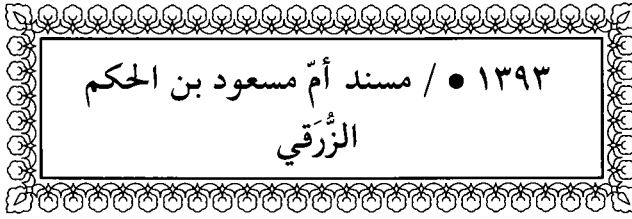 ١٣٩٣ ● / مسند أمّ مسعود بن الحكم
الزُّرَقي